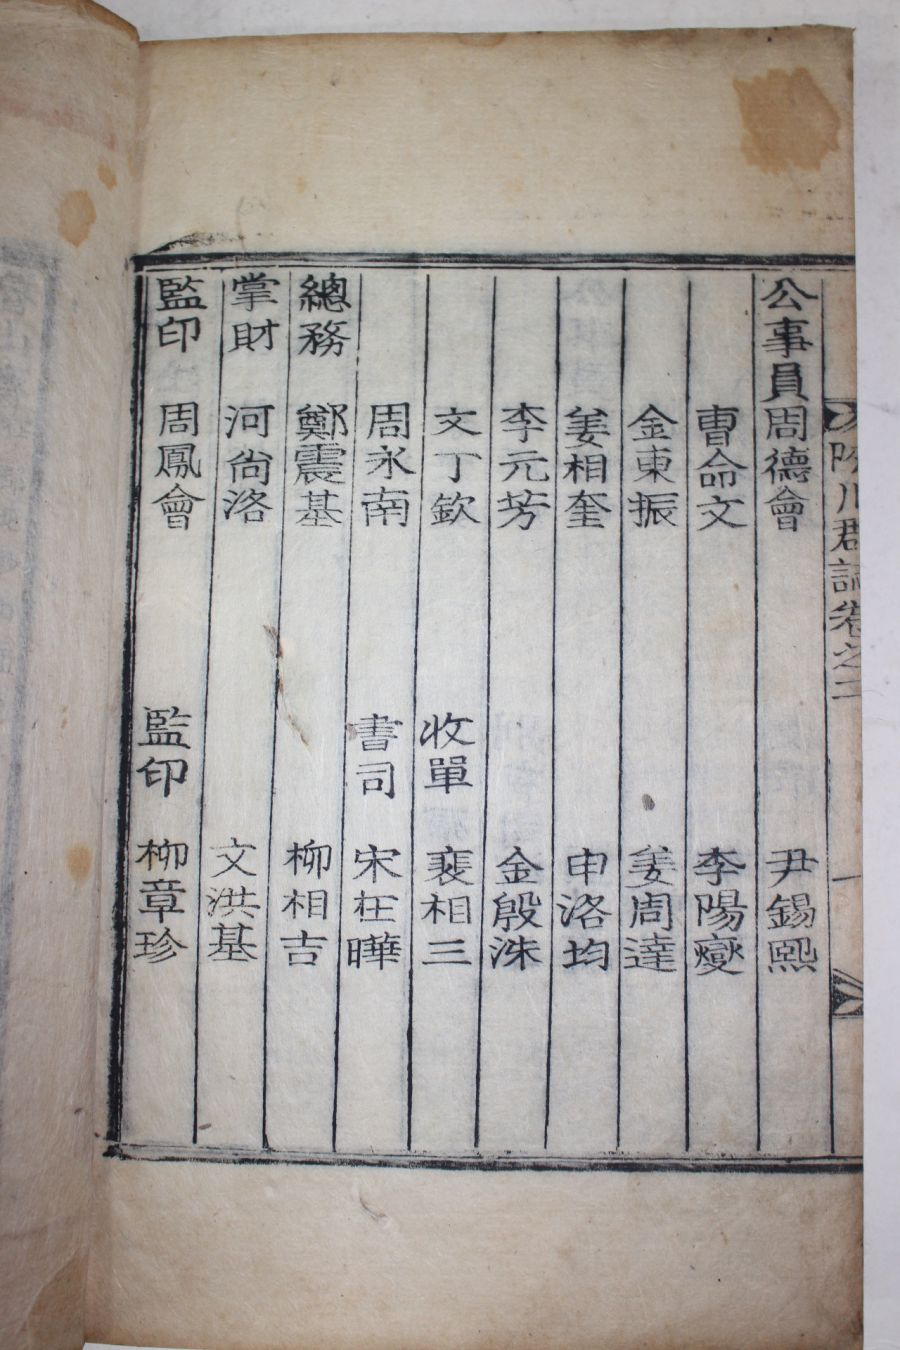 陜川郡誌卷之二
一
公事員 周德會 尹錫熙
曺命文 李陽燮
金東振 姜周達
姜相奎 申洛均
李元芳 金殷洙
文丁欽 收單 裵相三
周永南 書司 宋在曄
總務 鄭震基 柳相吉
掌財 河尙洛 文洪基
監印 周鳳會 監印 柳章珍